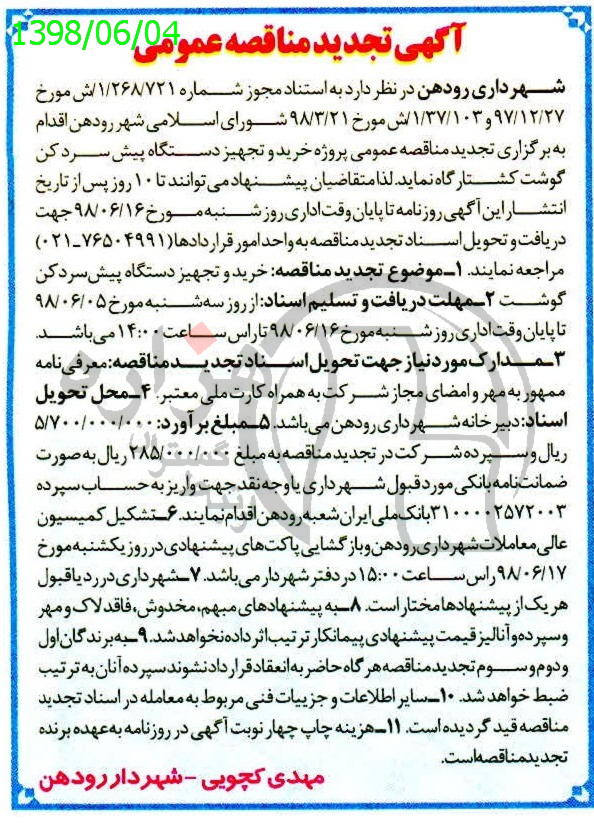 1398/06/04
آگهی تجدید مناقصه عمومی
شهرداری رودهن در نظر دارد به استناد مجوز شماره ۱/۲۶۸/۷۲۱/ش مورخ
۹۷/۱۲/۲۷ و ۱/۳۷/۱۰۳/ش مورخ ۹۸/۳/۲۱ شورای اسلامی شهر رودهن اقدام
به برگزاری تجدید مناقصه عمومی پروژه خرید و تجهیز دستگاه پیش سرد کن
گوشت کشتارگاه نماید. لذا متقاضیان پیشنهاد می‌توانند تا ۱۰ روز پس از تاریخ
انتشار این آگهی روزنامه تا پایان وقت اداری روز شنبه مورخ ۹۸/۰۶/۱۶ جهت
دریافت و تحویل اسناد تجدید مناقصه به واحد امور قراردادها (۷۶۵۰۴۹۹۱-۰۲۱)
مراجعه نمایند. ۱-موضوع تجدید مناقصه: خرید و تجهیز دستگاه پیش سرد کن
گوشت ۲-مهلت دریافت و تسلیم اسناد: از روز سه‌شنبه مورخ ۹۸/۰۶/۰۵
تا پایان وقت اداری روز شنبه مورخ ۹۸/۰۶/۱۶ تا راس ساعت ۱۴:۰۰ می‌باشد.
۳-مدارک مورد نیاز جهت تحویل اسناد تجدید مناقصه: معرفی‌نامه
ممهور به مهر و امضای مجاز شرکت به همراه کارت ملی معتبر. ۴-محل تحویل
اسناد: دبیرخانه شهرداری رودهن می‌باشد. ۵-مبلغ برآورد: ۵/۷۰۰/۰۰۰/۰۰۰
ریال و سپرده شرکت در تجدید مناقصه به مبلغ ۲۸۵/۰۰۰/۰۰۰ ریال به صورت
ضمانت‌نامه بانکی مورد قبول شهرداری یا وجه نقد جهت واریز به حساب سپرده
۳۱۰۰۰۰۲۵۷۲۰۰۳ بانک ملی ایران شعبه رودهن اقدام نمایند. ۶-تشکیل کمیسیون
عالی معاملات شهرداری رودهن و بازگشایی پاکت‌های پیشنهادی در روز یکشنبه مورخ
۹۸/۰۶/۱۷ راس ساعت ۱۵:۰۰ در دفتر شهردار می‌باشد. ۷-شهرداری در رد یا قبول
هر یک از پیشنهادها مختار است. ۸-به پیشنهادهای مبهم، مخدوش، فاقد لاک و مهر
و سپرده و آنالیز قیمت پیشنهادی پیمانکار ترتیب اثر داده نخواهد شد. ۹-به برندگان اول
و دوم و سوم تجدید مناقصه هرگاه حاضر به انعقاد قرارداد نشوند سپرده آنان به ترتیب
ضبط خواهد شد. ۱۰-سایر اطلاعات و جزییات فنی مربوط به معامله در اسناد تجدید
مناقصه قید گردیده است. ۱۱-هزینه چاپ چهار نوبت آگهی در روزنامه به عهده برنده
تجدید مناقصه است.
مهدی کچویی - شهردار رودهن